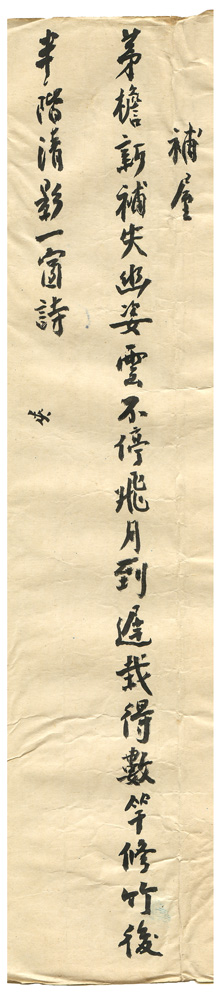 補屋
茅檐新補失幽姿雲不停飛月到遲栽得數竿修竹後
半階清影一窗詩